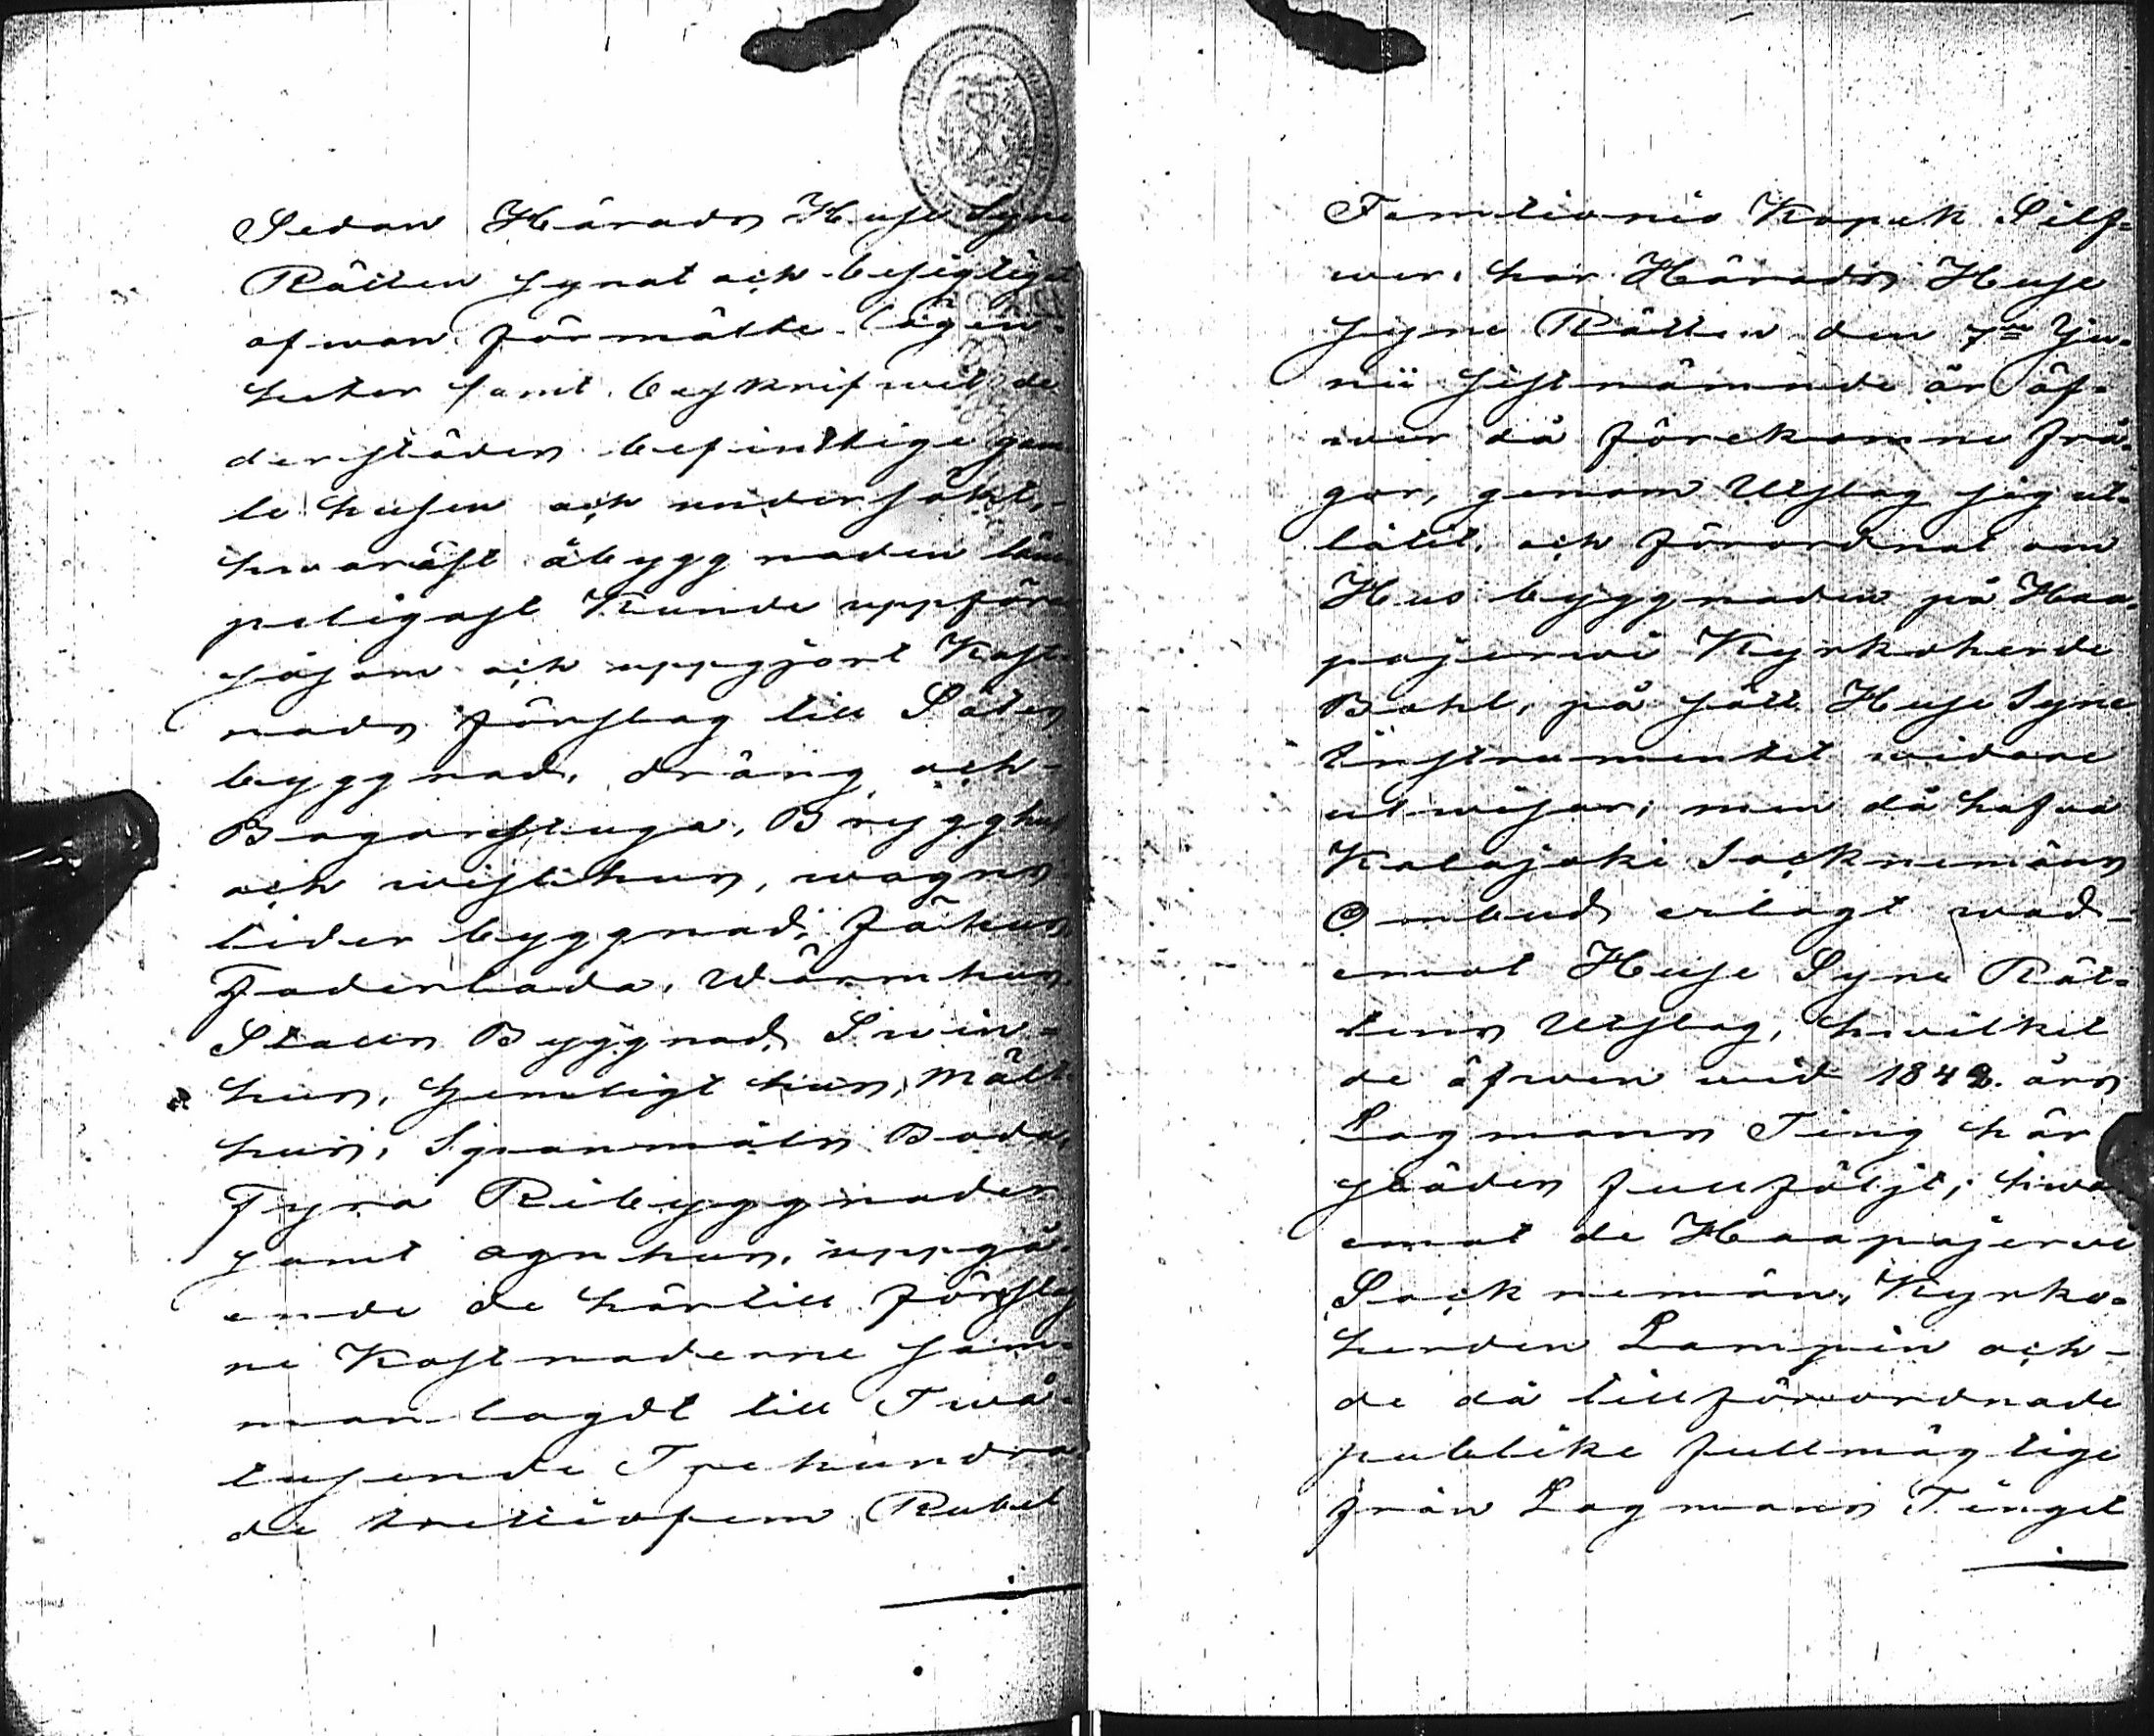 Sedan Härads Huse Syne
Rätten synat och besigtigat
ofwan förmälte lägen-
heter samt beskrifwit de
derstädes befintlige gam
le husen och undersökt,
hwaräst åbyggnaden läm
peligast kunde uppföra
såsom och uppgjort Kost-
nads förslag till Sätes
byggnad, dräng och
Bagarestuga, Brygghus
och wisthus, wagns
lider byggnad, Fähus
Foderlada, Wärmhus
Stalls Byggnad, Swin-
hus, hemligt hus, Mält
hus, Spanmåls Boda,
Fyra Ribyggnader
samt agnhus, uppgå-
ende de härtill förslag
ne Kostnaderne sam-
manlagdt till Twå-
tusende Trehundra
de trettiofem Rubel
Femtionio Kopek Silf-
wer, har Härads Huse
Syne Rätten den 7de Ju-
nii sistnämnde år öf-
wer då förekomne frå-
gor, genom Utslag sig ut-
låtit, och förordnat om
Hus byggnaden på Haa-
pajerwi Kyrkoherde
Bohl, på sätt Huse Syne
Instrumentet widare
utwisar; men då hafwa
Kalajoki Socknemäns
Ombud erlagt wad
emot Huse Syne Rät-
tens Utslag, hwilket
de äfwen wid 1842 års
Lagmans Ting här
städes fullföljt; hwar
emot de Haapajerwi
Socknemän, Kyrko-
herden Lampén och
de då tillförordnade
publike fullmägtige
från Lagmans Tinget